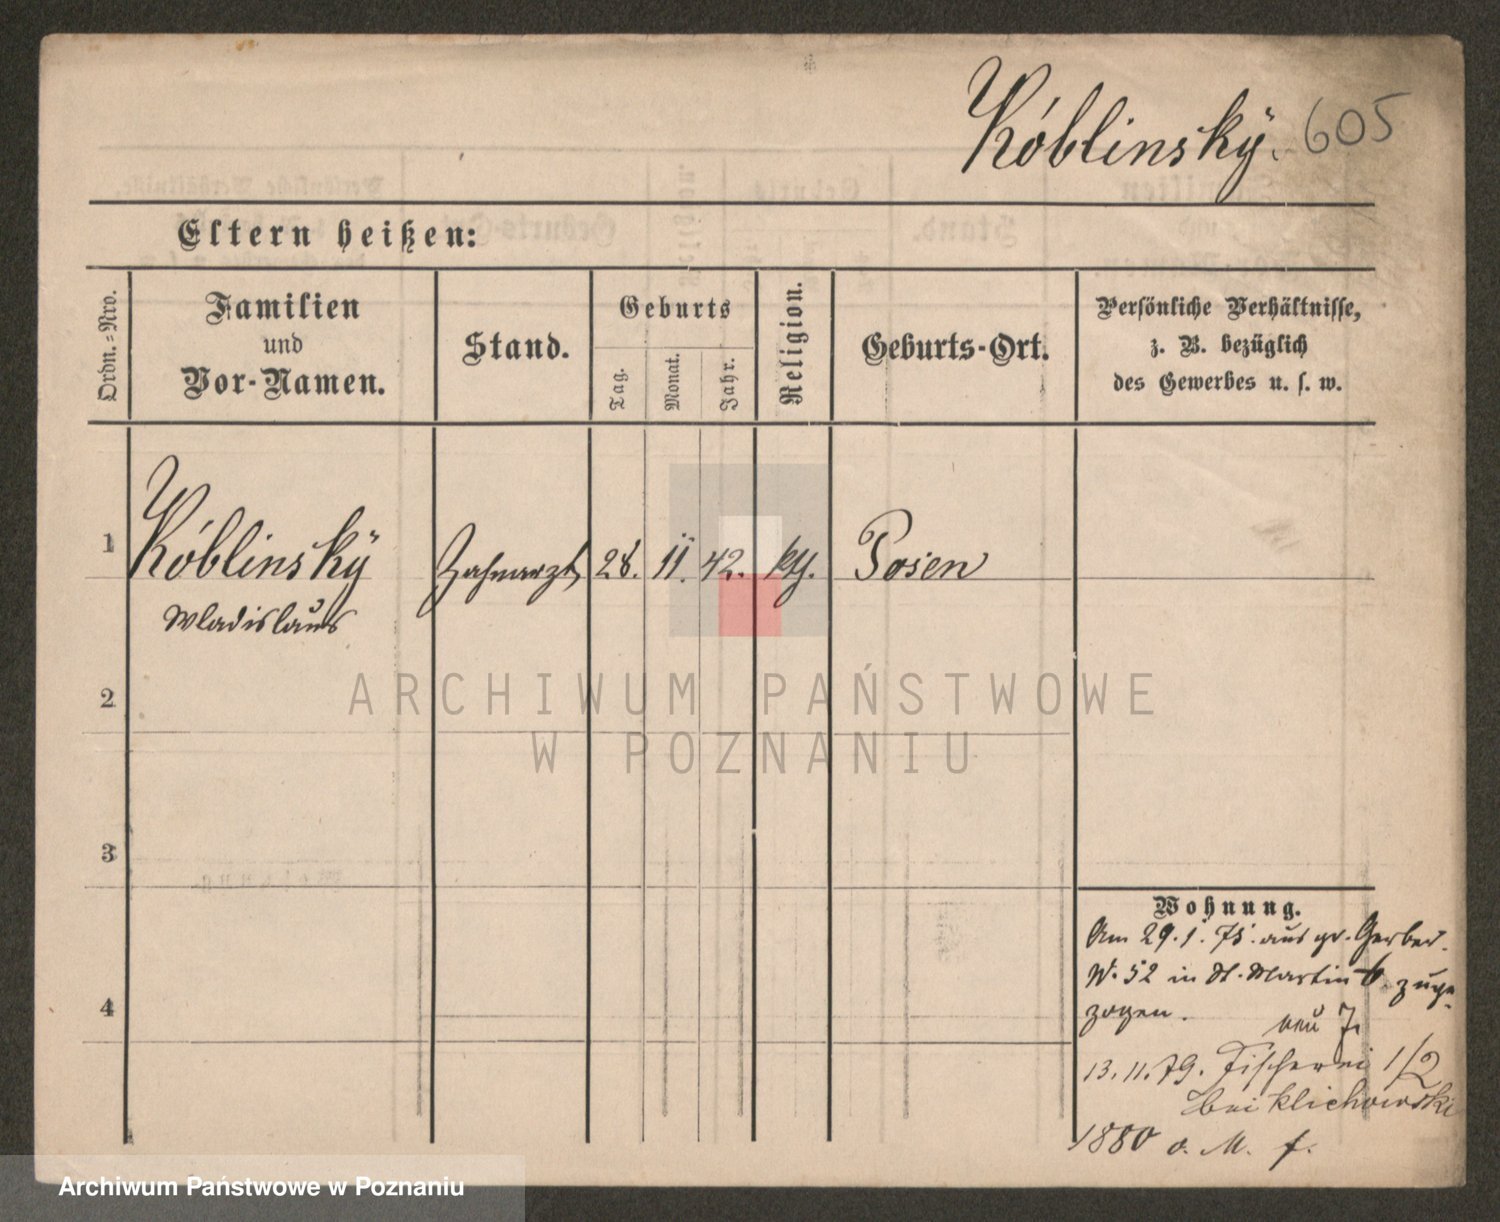 Kóblinsky. 605
Eltern heißen:
Ordn.-Nro.
Familien
und
Vor-Namen.
Stand.
Geburts
Tag.
Monat.
Jahr.
Religion.
Geburts-Ort.
Persönliche Verhältnisse,
z. B. bezüglich
des Gewerbes u. s. w.
1
Kóblinsky
Wladislaus
Zahnarzt
28.
11.
42.
kth.
Posen
2
3
4
Wohnung.
Am 29.1.75. aus gr. Gerber.
N. 52 in St. Martin 6 zuge
zogen.
neu 7.
13.11.79. Fischerei 1/2
bei Klichowski
1880 o. M. f.
ARCHIWUM PAŃSTWOWE
W POZNANIU
Archiwum Państwowe w Poznaniu